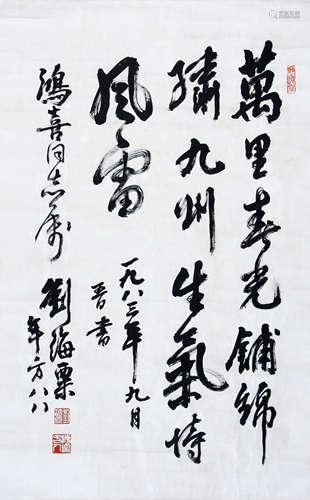 萬里春光鋪錦
繡九州生氣恃
風雷
一九八三年九月
晋書
鴻喜同志属
劉海粟
年方八八